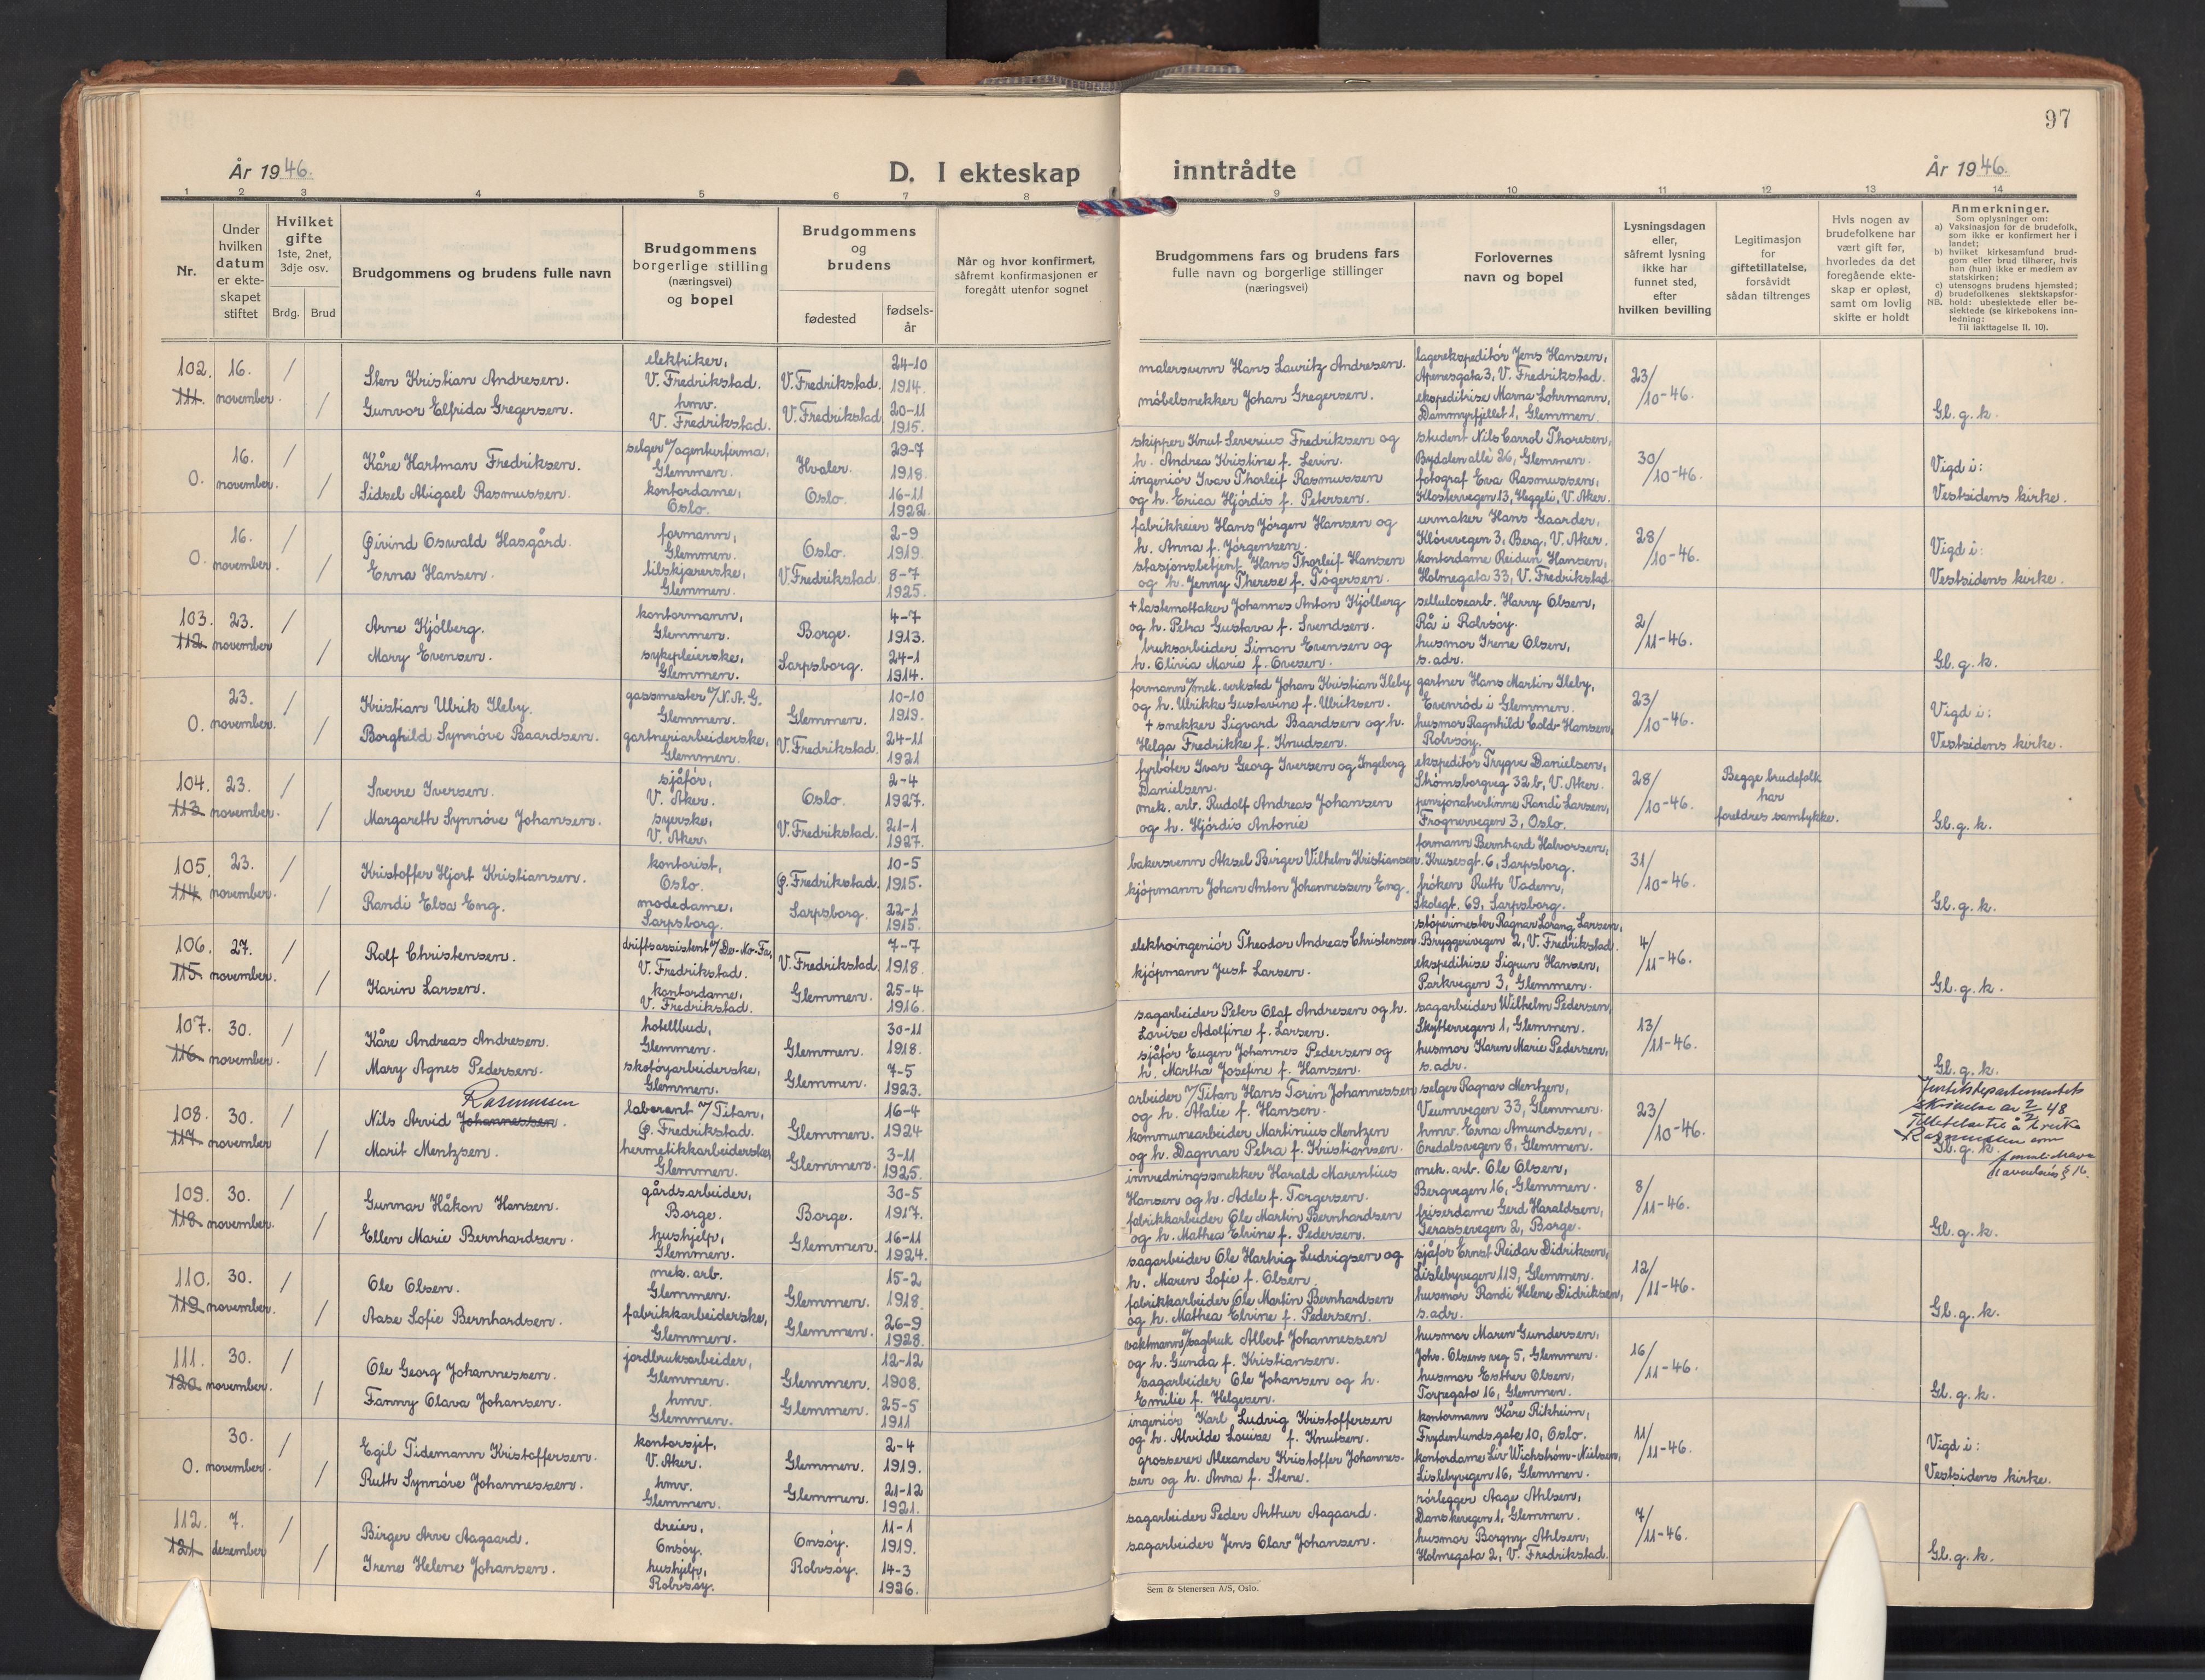 97
År 1946.
D. I ekteskap inntrådte
År 1946.
1 2 3 4 5 6 7 8 9 10 11 12 13 14
Nr.
Under hvilken datum er ekteskapet stiftet
Hvilket gifte 1ste, 2net, 3dje osv.
Brdg. Brud
Brudgommens og brudens fulle navn
Brudgommens borgerlige stilling (næringsvei) og bopel
Brudgommens og brudens
fødested
fødselsår
Når og hvor konfirmert, såfremt konfirmasjonen er foregått utenfor sognet
Brudgommens fars og brudens fars fulle navn og borgerlige stillinger (næringsvei)
Forlovernes navn og bopel
Lysningsdagen eller, såfremt lysning ikke har funnet sted, efter hvilken bevilling
Legitimasjon for giftetillatelse, forsåvidt sådan tiltrenges
Hvis nogen av brudefolkene har vært gift før, hvorledes da det foregående ekteskap er opløst, samt om lovlig skifte er holdt
Anmerkninger.
Som oplysninger om:
a) Vaksinasjon for de brudefolk, som ikke er konfirmert her i landet;
b) hvilket kirkesamfund brudgom eller brud tilhører, hvis han (hun) ikke er medlem av statskirken;
c) utensogns brudens hjemsted;
d) brudefolkenes slektskapsforhold: ubeslektede eller beslektede (se kirkebokens innledning:
NB. Til iakttagelse II. 10).
102. 111. 16. november. / /
Sten Kristian Andresen.
Gunvor Elfrida Gregersen.
elektriker, V. Fredrikstad.
hmv. V. Fredrikstad.
V. Fredrikstad. 24-10 1914
V. Fredrikstad 20-11 1915.
malersvenn Hans Lauritz Andresen.
møbelsnekker Johan Gregersen.
lagerekspeditør Jens Hansen,
Apenesgata 3, V. Fredrikstad.
ekspeditrise Marna Lohrmann,
Dammyrfjellet 1, Glemmen.
23/10-46.
Gl. g. k.
0. 16. november. / /
Kåre Hartman Fredriksen.
Sidsel Abigael Rasmussen.
selger v/agenturfirma, Glemmen.
kontordame, Oslo.
Hvaler. 29-7 1918.
Oslo. 16-11 1922.
skipper Knut Severius Fredriksen og
h. Andrea Kristine f. Levin.
ingeniør Ivar Thorleif Rasmussen
og h. Erica Hjørdis f. Petersen.
student Nils Carrol Thoresen,
Bydalen allè 26, Glemmen.
fotograf Eva Rasmussen,
Klostervegen 13, Heggeli, V. Aker.
30/10-46.
Vigd i:
Vestsidens kirke.
0. 16. november. / /
Øivind Oswald Hasgård.
Erna Hansen.
formann, Glemmen.
tilskjærerske, Glemmen.
Oslo. 2-9 1919.
V. Fredrikstad 8-7 1925.
fabrikkeier Hans Jørgen Hansen og
h. Anna f. Jørgensen.
stasjonsbetjent Hans Thorleif Hansen
og h. Jenny Therese f. Tøgersen.
urmaker Hans Gaarder,
Kløvervegen 3, Berg, V. Aker.
kontordame Reidun Hansen,
Holmegata 33, V. Fredrikstad
28/10-46.
Vigd i:
Vestsidens kirke.
103. 112. 23. november / /
Arne Kjølberg.
Mary Evensen.
kontormann, Glemmen.
sykepleierske, Glemmen.
Borge. 4-7 1913.
Sarpsborg. 24-1 1914.
+ lastemottaker Johannes Anton Kjølberg
og h. Petra Gustava f. Svendsen.
bruksarbeider Simon Evensen og
h. Olivia Marie f. Ovesen.
sellulosearb. Harry Olsen,
Rå i Rolvsøy.
husmor Irene Olsen,
s. adr.
2/11-46.
Gl. g. k.
0. 23. november. / /
Kristian Ulrik Ileby.
Borghild Synnøve Baardsen.
gassmester v/N.A.G. Glemmen.
gartneriarbeiderske, Glemmen.
Glemmen. 10-10 1919.
V. Fredrikstad. 24-11 1921
formann v/mek. verksted Johan Kristian Ileby
og h. Ulrikke Gustavine f. Ulriksen.
+ snekker Sigvard Baardsen og h.
Helga Fredrikke f. Knudsen.
gartner Hans Martin Ileby,
Evenrød i Glemmen.
husmor Ragnhild Cold-Hansen,
Rolvsøy.
23/10-46.
Vigd i:
Vestsidens kirke.
104. 113. 23. november. / /
Sverre Iversen.
Margareth Synnøve Johansen.
sjåfør, V. Aker.
syerske, V. Aker.
Oslo. 2-4 1927.
V. Fredrikstad. 21-1 1927.
fyrbøter Ivar Georg Iversen og Ingeberg
Danielsen.
mek. arb. Rudolf Andreas Johansen
og h. Hjørdis Antonie
ekspeditør Trygve Danielsen,
Strømsborgveg 32 b, V. Aker.
pensjonatvertinne Randi Larsen,
Frognervegen 3, Oslo.
28/10-46.
Begge brudefolk har foreldres samtykke.
Gl. g. k.
105. 114. 23. november. / /
Kristoffer Hjort Kristiansen.
Randi Elsa Eng.
kontorist, Oslo.
modedame, Sarpsborg.
Ø. Fredrikstad. 10-5 1915.
Sarpsborg. 22-1 1915.
bakersvenn Aksel Birger Vilhelm Kristiansen.
kjøpmann Johan Anton Johannessen Eng.
formann Bernhard Halvorsen,
Krusesgt. 6, Sarpsborg.
frøken Ruth Vadem,
Skolegt. 69, Sarpsborg.
31/10-46.
Gl. g. k.
106. 115. 27. november. / /
Rolf Christensen.
Karin Larsen.
driftsassistent v/De-No-Fa, V. Fredrikstad.
kontordame, V. Fredrikstad.
V. Fredrikstad 7-7 1918.
Glemmen. 25-4 1916.
elektroingeniør Theodor Andreas Christensen.
kjøpmann Just Larsen.
støperimester Ragnar Lorang Larsen,
Bryggerivegen 2, V. Fredrikstad.
ekspeditrise Sigrun Hansen,
Parkvegen 3, Glemmen.
4/11-46.
Gl. g. k.
107. 116. 30. november. / /
Kåre Andreas Andresen.
Mary Agnes Pedersen.
hotellbud, Glemmen.
skotøyarbeiderske, Glemmen.
Glemmen. 30-11 1918.
Glemmen. 7-5 1923.
sagarbeider Peter Olaf Andresen og h.
Lovise Adolfine f. Larsen.
sjåfør Eugen Johannes Pedersen og
h. Martha Josefine f. Hansen.
sagarbeider Wilhelm Pedersen,
Skyttervegen 1, Glemmen.
husmor Karen Marie Pedersen,
s. adr.
13/11-46.
Gl. g. k.
108. 117. 30. november. / /
Rasmussen
Nils Arvid Johannessen.
Marit Mentzsen.
laborant v/Titan, Ø. Fredrikstad.
hermetikkarbeiderske, Glemmen.
Glemmen. 16-4 1924
Glemmen. 3-11 1925.
arbeider v/Titan Hans Torin Johannessen
og h. Atalie f. Hansen.
kommunearbeider Martinius Mentzen
og h. Dagmar Petra f. Kristiansen.
selger Ragnar Mentzen,
Veumvegen 33, Glemmen.
hmv. Erna Amundsen,
Oredalsvegen 8, Glemmen.
23/10-46.
Justisdepartementets
skrivelse av 2/2 48
Tillatelse til å bruke
Rasmussen som
Gl. g. k.
109. 118. 30. november. / /
Gunnar Håkon Hansen.
Ellen Marie Bernhardsen.
gårdsarbeider, Borge.
hushjelp, Glemmen.
Borge. 30-5 1917.
Glemmen. 16-11 1924.
innredningssnekker Harald Marentius
Hansen og h. Adele f. Torgersen.
fabrikkarbeider Ole Martin Bernhardsen
og h. Mathea Elvine f. Pedersen.
mek. arb. Ole Olsen,
Bergvegen 16, Glemmen.
friserdame Gerd Haraldsen,
Terassevegen 2, Borge.
8/11-46.
Gl. g. k.
110. 119. 30. november. / /
Ole Olsen.
Aase Sofie Bernhardsen.
mek. arb. Glemmen.
fabrikkarbeiderske, Glemmen.
Glemmen. 15-2 1918.
Glemmen. 26-9 1928.
sagarbeider Ole Hartvig Ludvigsen og
h. Maren Sofie f. Olsen.
fabrikkarbeider Ole Martin Bernhardsen
og h. Mathea Elvine f. Pedersen.
sjåfør Ernst Reidar Didriksen,
Lislebyvegen 119, Glemmen.
husmor Randi Helene Didriksen,
s. adr.
12/11-46.
Gl. g. k.
111. 120. 30. november. / /
Ole Georg Johannessen.
Fanny Olava Johansen.
jordbruksarbeider, Glemmen.
hmv. Glemmen.
Glemmen. 12-12 1908.
Glemmen. 25-5 1911
vaktmann v/sagbruk Albert Johannessen
og h. Gunda f. Kristiansen.
sagarbeider Ole Johansen og h.
Emilie f. Helgesen.
husmor Maren Gundersen,
Johs. Olsens veg 5, Glemmen.
husmor Esther Olsen,
Torpegata 16, Glemmen.
16/11-46.
Gl. g. k.
0. 30. november. / /
Egil Tidemann Kristoffersen.
Ruth Synnøve Johannessen.
kontorsjef, V. Aker.
hmv. Glemmen.
Glemmen. 2-4 1919.
Glemmen. 21-12 1921.
ingeniør Karl Ludvig Kristoffersen
og h. Alvilde Louise f. Knutsen.
grosserer Alexander Kristoffer Johannes-
sen og h. Anna f. Stene.
kontormann Kåre Rikheim,
Frydenlundsgate 10, Oslo.
kontordame Liv Wichstrøm-Nielsen,
Lislebyvegen 16, Glemmen.
11/11-46.
Vigd i:
Vestsidens kirke.
112. 121. 7. desember / /
Birger Arve Aagaard.
Irene Helene Johansen.
dreier, Onsøy.
hushjelp, Rolvsøy.
Onsøy. 11-1 1919.
Rolvsøy. 14-3 1926.
sagarbeider Peder Arthur Aagaard.
sagarbeider Jens Olav Johansen.
rørlegger Aage Ahlsen,
Danskevegen 1, Glemmen.
husmor Borgny Ahlsen,
Holmegata 2, V. Fredrikstad.
7/11-46.
Gl. g. k.
Sem & Stenersen A/S, Oslo.